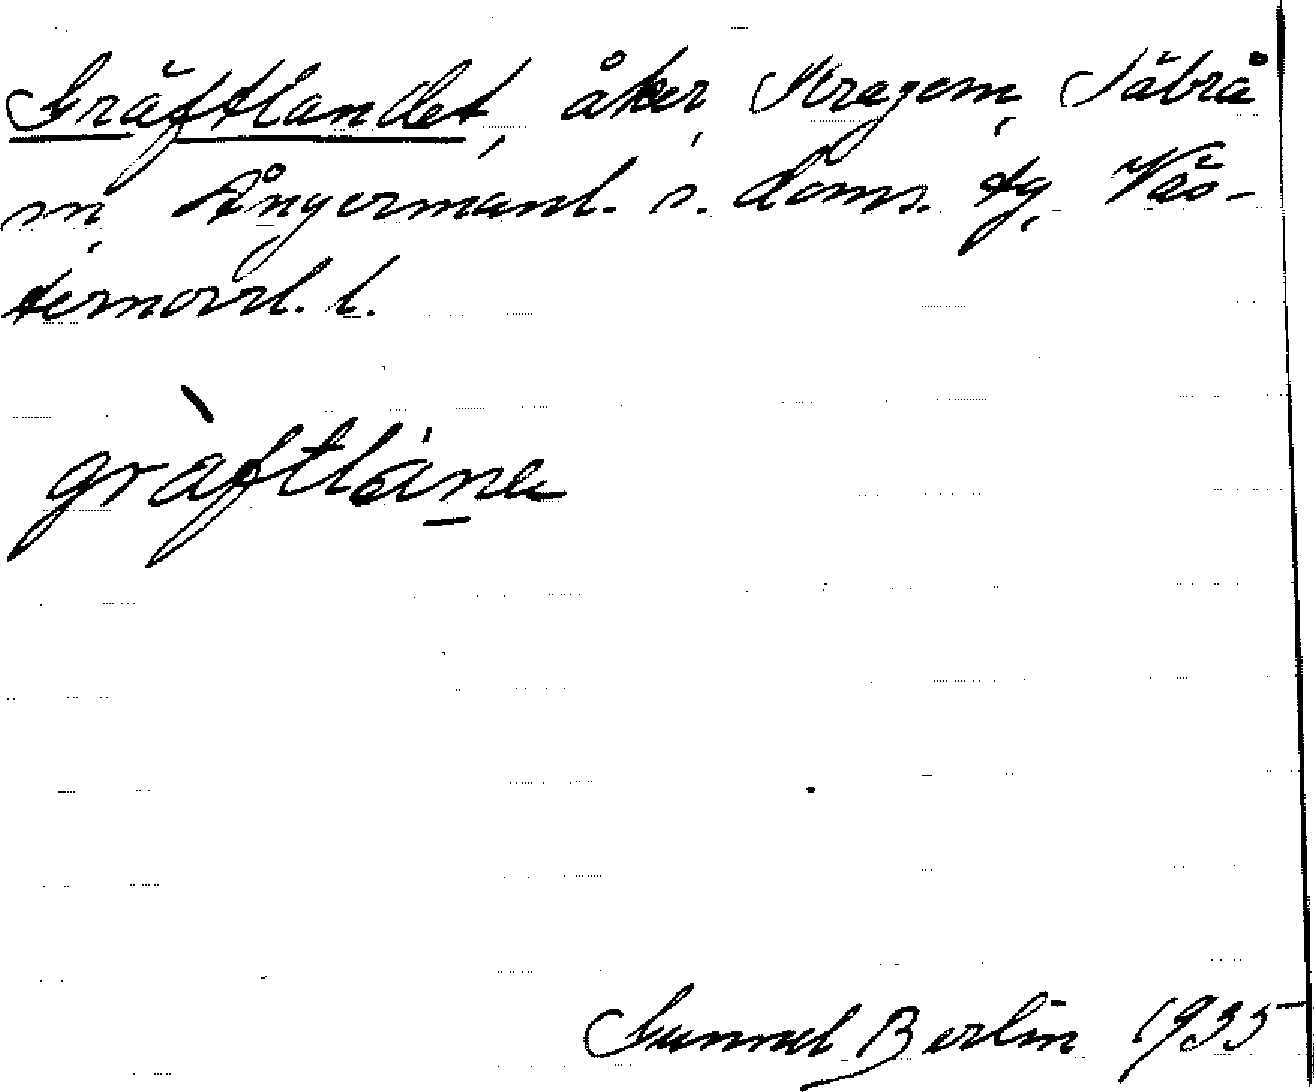 Gräftlandet, åker, Kragom, Säbrå
sn, Ångermanl. s. doms. tg, Väs-
ternorrl. l.
gràftlánɐ
Gunnel Berlin 1935